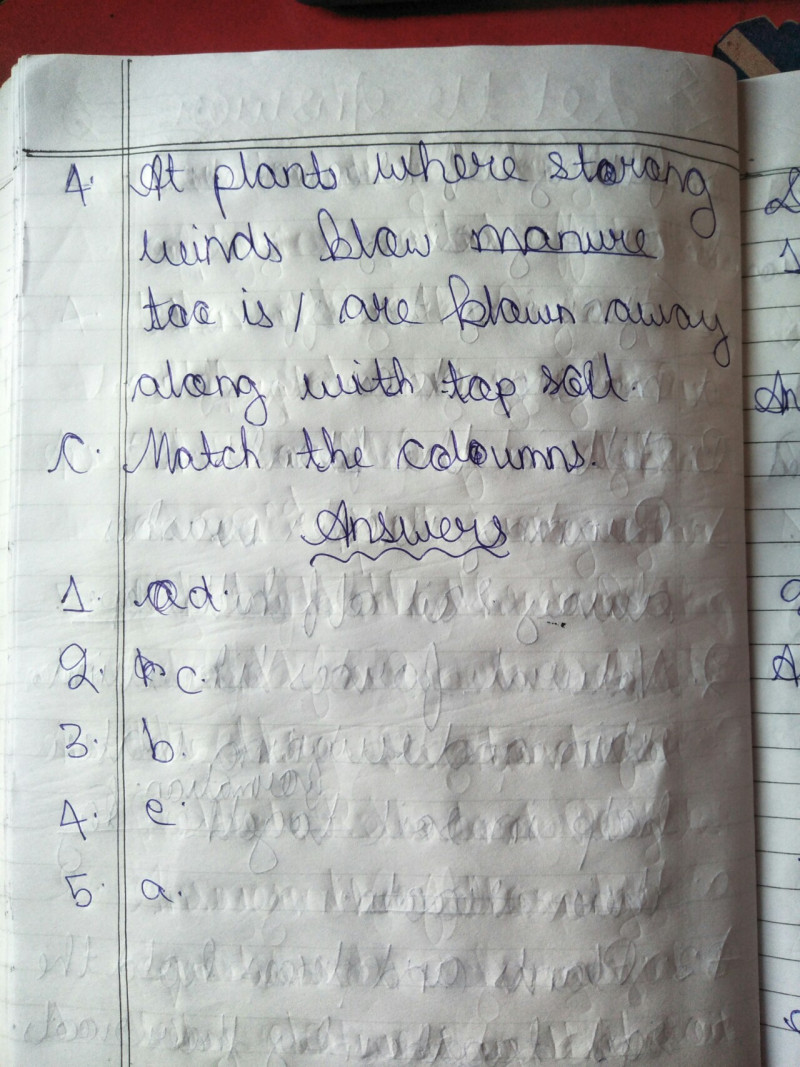 4. At plants where storong
winds blow manure
too is / are blown away
along with top soil.
C. Match the coloumns.
Answers
1. d.
2. c.
3. b.
4. e.
5. a.